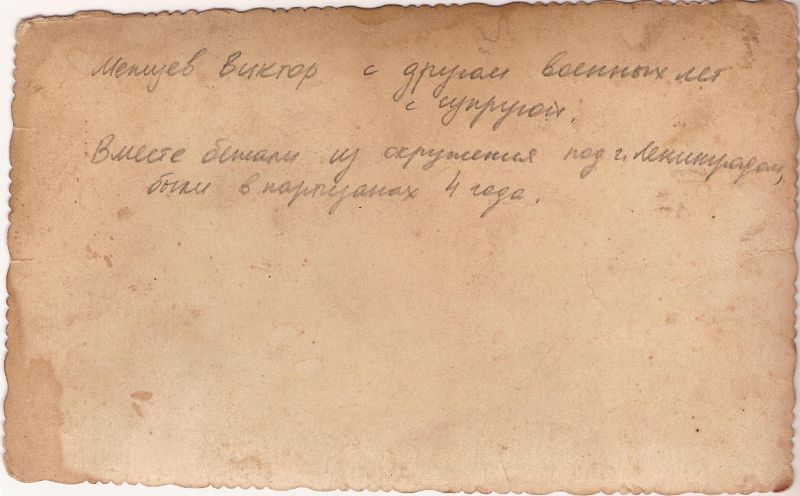 Виктор с другом военных лет
с супругой.
Вместе бежали из окружения под г. Ленинградом,
были в партизанах 4 года.